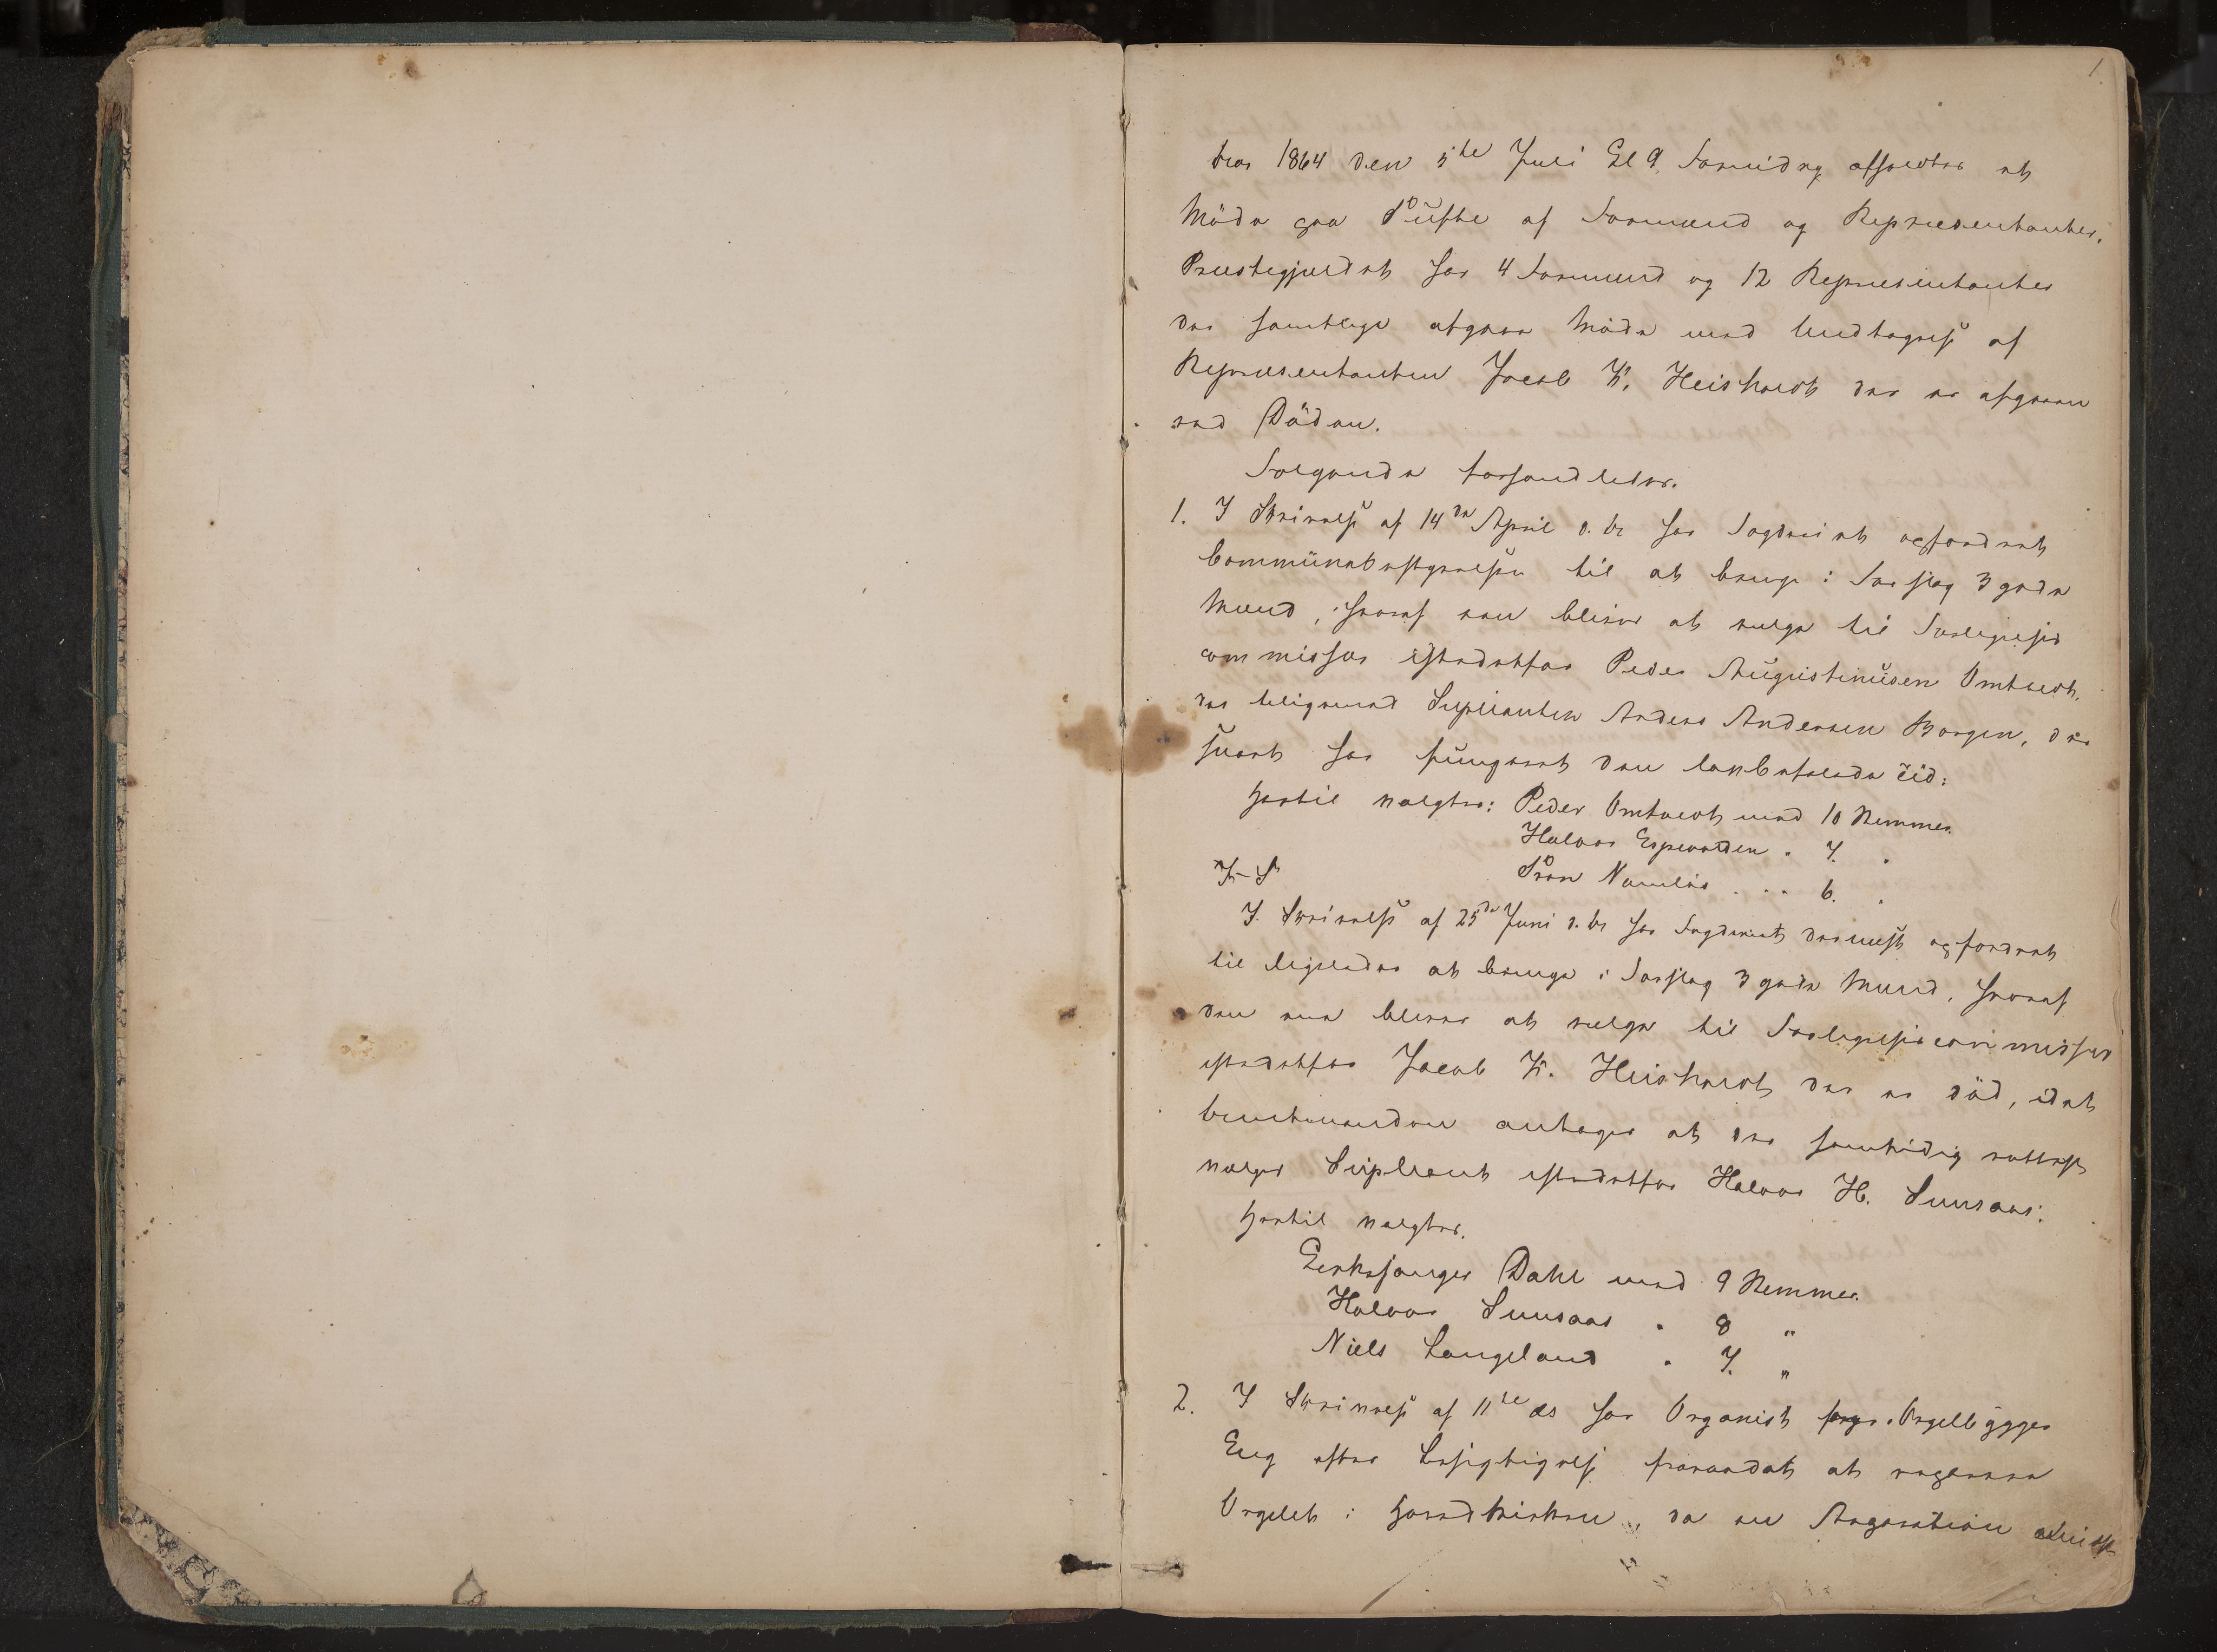 1.
Aar 1864 den 5te Juli Kl 9. Formidag afholdtes et
Möde paa Tufte af Formænd og Repræsentanter.
Præstegjældet har 4 Formænd og 12 Repræsentanter
der samtlige afgav Möde med Undtagelse af
Repræsentanten Jacob K. Heisholdt der er afgaaen
ved Döden.
Folgende forhandledes.
1. I Skrivelse af 14de April d. A. har Fogderiet opfordret
Communebestyrelsen til at bringe i Forslag 3 gode
Mænd, hvoraf een bliver at vælge til Forligelses
commissær istedetfor Peder Augustinusen Omtvedt,
der ligemed Suplianten Anders Andersen Borgen, der
snart har fungeret den lanbefalede Tid:
Hertil valgtes: Peder Omtvedt med 10 Stemmer.
Halvor Espevolden " 7. "
Sven Namlös " " 6. "
I Skrivelse af 25de Juni d. A. har Fogderiet dernæst opfordret
til ligeledes at bringe i Forslag 3 gode Mænd, hvoraf
den ene bliver at vælge til Forligelsescommissær
istedetfor Jacob K. Heisholdt der er död, idet
Amtmanden antager at der samtidig rettest
vælges Supleant istedetfor Halvor H. Sunsaas:
Hertil valgtes.
Kirkesanger Dahl med 9 Stemmer.
Halvor Sunsaas " 8 "
Niels Langeland " 7. "
2. I Skrivelse af 11te ds har Organist Orgelbygger
Eng efter Besigtigelse foreraadet at reparere
Orgelet i Hovedkirken, da en Reparation